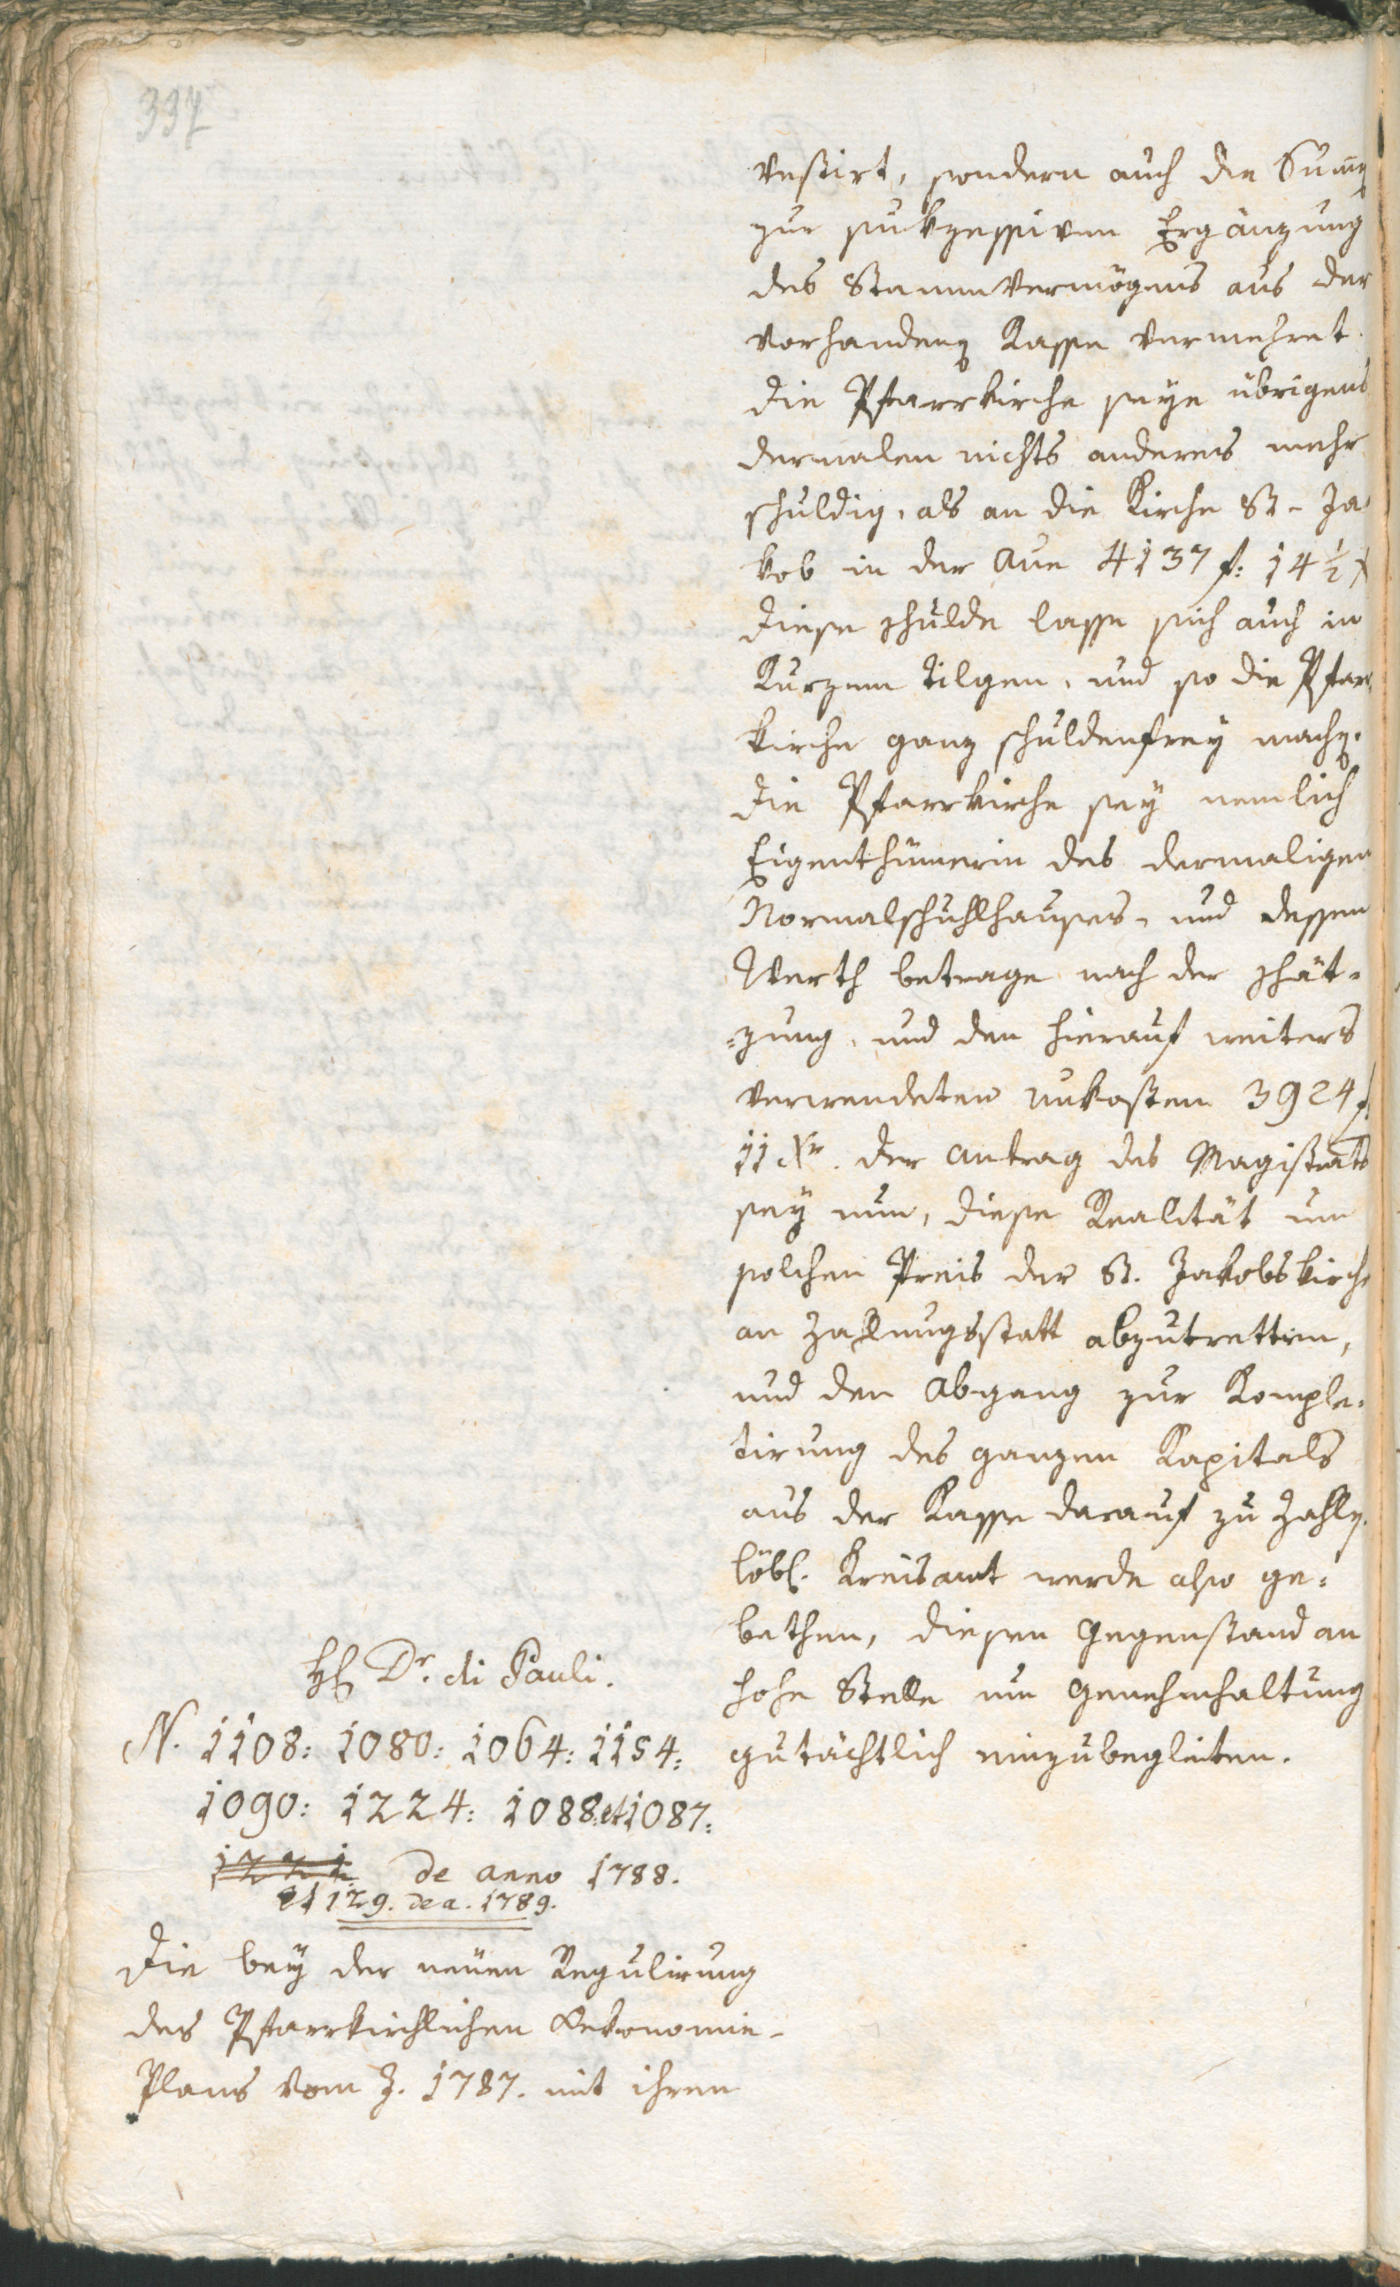 337
vestirt, sondern auch die Summe
zur sukzessiven Ergänzung
des Stammvermögens aus der
vorhandenen Kasse vermehret.
die Pfarrkirche seye übrigens
dermalen nichts anderes mehr
schuldig, als an die Kirche St. Ja-
kob in der Aue 4137 f: 14 1/2 x
diese Schulde lasse sich auch in
Kurzem tilgen, und so die Pfarr
kirche ganz schuldenfrey machen.
die Pfarrkirche sey nemlich
Eigenthümerin des dermaligen
Normalschuhlhauses, und dessen
Werth betrage nach der Schät-
-zung, und den hierauf weiters
verwendeten Unkosten 3924 f
11 Xr. der Antrag des Magistrats
sey nun, diese Realität um
solchen Preis der St. Jakobskirche
an Zallungsstatt abzutretten,
und den Abgang zur Komple-
tirung des ganzen Kapitals
aus der Kasse darauf zu Zahlen.
löbl. Kreisamt werde also ge-
bethen, diesen Gegenstand an
hohe Stelle um Genehmhaltung
gutächtlich einzubegleiten.
H Dr. di Pauli.
N. 1108: 1080: 1064: 1154:
1090: 1224: 1088 et 1087:
de anno 1788.
et 129. de a. 1789.
Die bey der neüen Regulirung
des Pfarrkirchlichen Oekonomie-
Plans vom J. 1787. mit ihren